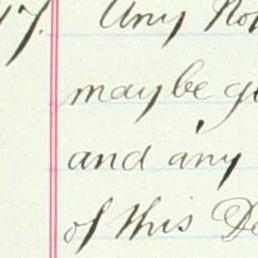 17. Any No
maybe g
and any
of this De